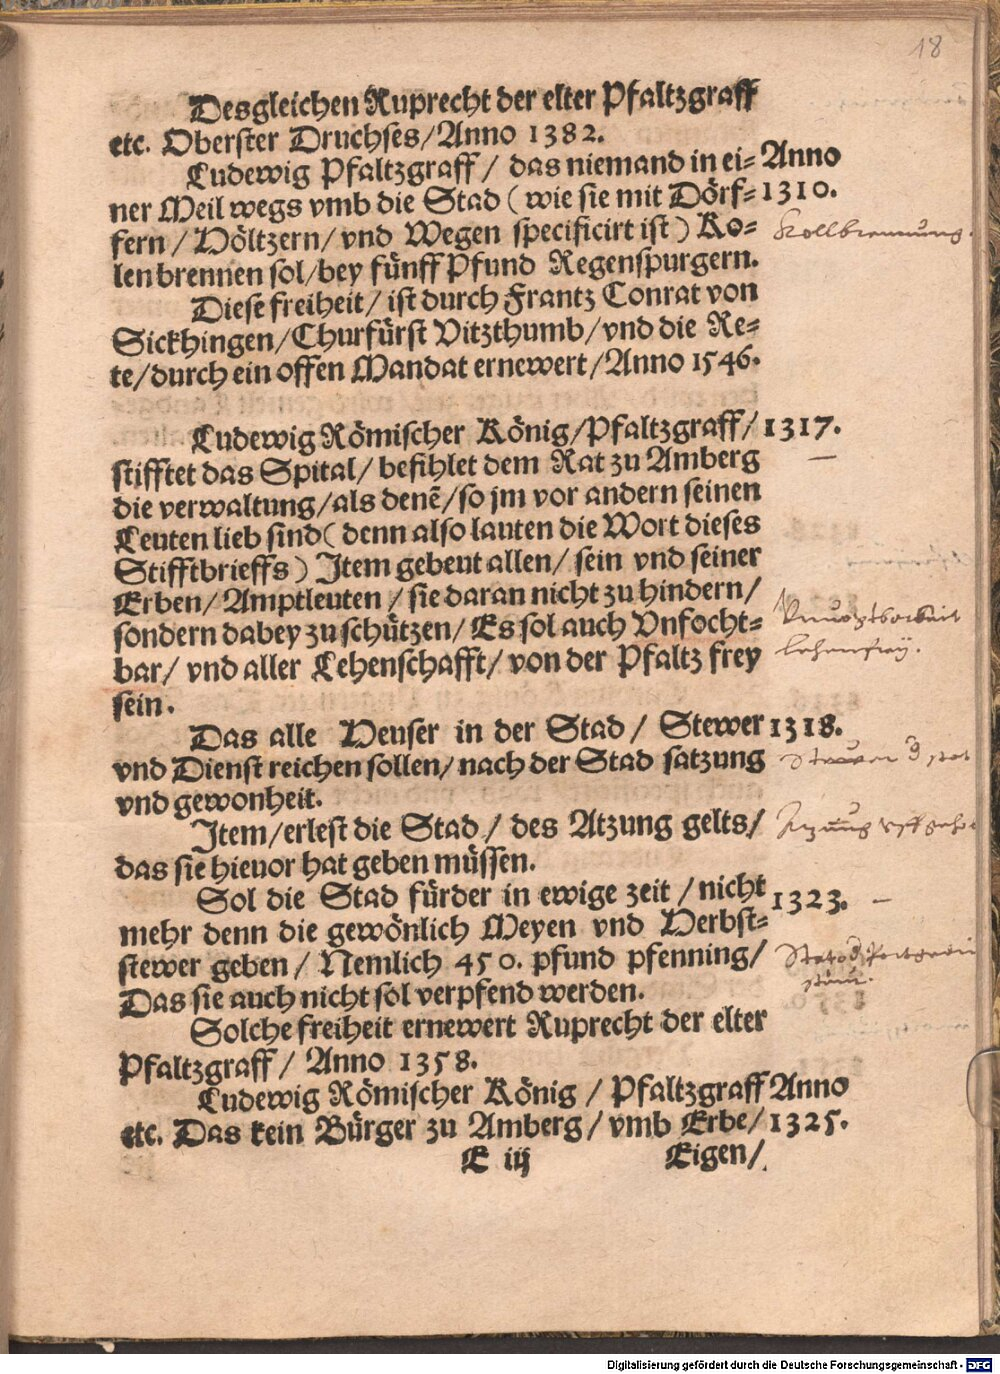 18
Desgleichen Ruprecht der elter Pfaltzgraff
etc. Oberster Druchses/Anno 1382.
Ludewig Pfaltzgraff/ das niemand in ei= Anno
ner Meil wegs vmb die Stad (wie sie mit Dörf= 1310.
fern/Höltzern/vnd Wegen specificirt ist) Ko= Kollbrennung.
len brennen sol/bey fünff Pfund Regenspurgern.
Diese freiheit/ ist durch Frantz Conrat von
Sickhingen/Churfürst Vitzthumb/vnd die Re=
te/durch ein offen Mandat ernewert/Anno 1546.
Ludewig Römischer König/Pfaltzgraff/ 1317.
stifftet das Spital/ befihlet dem Rat zu Amberg
die verwaltung/als denē/so jm vor andern seinen
Leuten lieb sind(denn also lauten die Wort dieses
Stifftbrieffs) Item gebeut allen/ sein vnd seiner
Erben/Amptleuten/ sie daran nicht zu hindern/
sondern dabey zu schützen/Es sol auch Vnfocht=
bar/ vnd aller Lehenschafft/von der Pfaltz frey lehenfrey.
sein.
Das alle Heuser in der Stad/ Stewer 1318.
vnd Dienst reichen sollen/nach der Stad satzung
vnd gewonheit.
Item/erlest die Stad/ des Atzung gelts/
das sie hieuor hat geben müssen.
Sol die Stad fürder in ewige zeit/nicht 1323.
mehr denn die gewönlich Meyen vnd Herbst=
stewer geben/ Nemlich 450. pfund pfenning/
Das sie auch nicht sol verpfend werden.
Solche freiheit ernewert Ruprecht der elter
Pfaltzgraff/ Anno 1358.
Ludewig Römischer König/ Pfaltzgraff Anno
etc. Das kein Bürger zu Amberg/vmb Erbe/ 1325.
E iij Eigen/
Digitalisierung gefördert durch die Deutsche Forschungsgemeinschaft - DFG